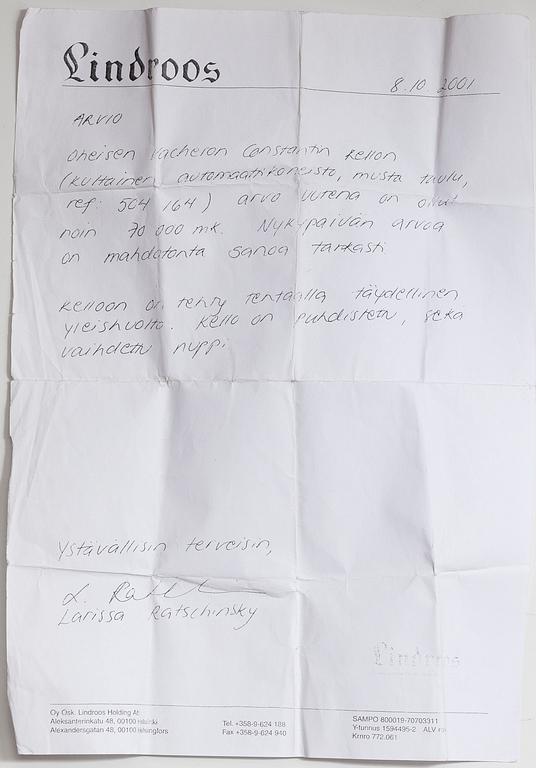 Lindroos
8.10 2001
ARVIO
Oheisen Vacheron Constantin kellon
(kultainen automaattikoneisto, musta taulu,
ref: 504 164) arvo uutena on ollut
noin 70 000 mk. Nykypäivän arvoa
on mahdotonta sanoa tarkasti
Kelloon on tehty tehtaalla täydellinen
yleishuolto. Kello on puhdistettu, sekä
vaihdettu nuppi.
Ystävällisin terveisin,
Larissa Ratschinsky
Lindroos
Oy Osk. Lindroos Holding Ab
Aleksanterinkatu 48, 00100 Helsinki
Alexandersgatan 48, 00100 Helsingfors
Tel. +358-9-624 188
Fax +358-9-624 940
SAMPO 800019-70703311
Y-tunnus 1594495-2 ALV
Krnro 772.061